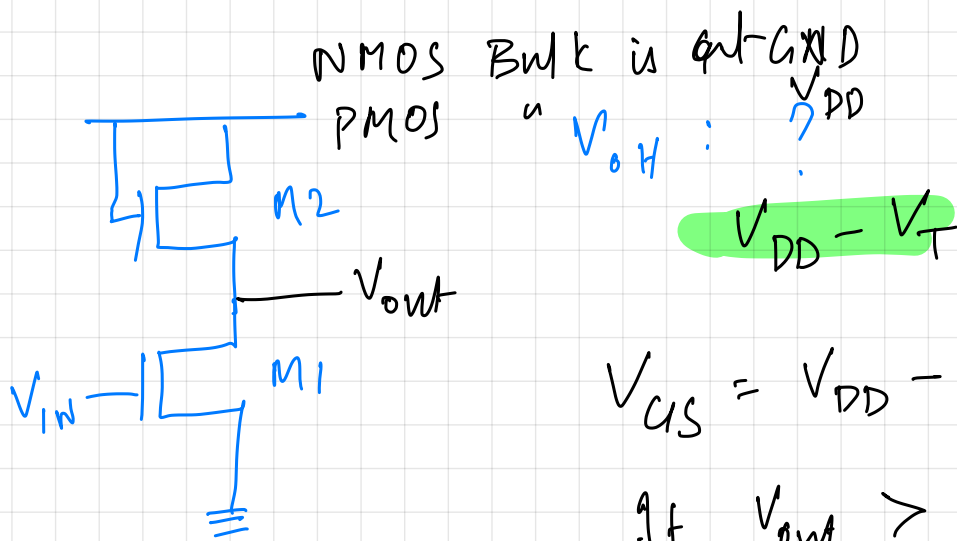 NMOS Bulk is at GND
PMOS " VDD
VOH : ?
M2
VDD - VT
Vout
M1
VIN
VGS = VDD -
If Vout >